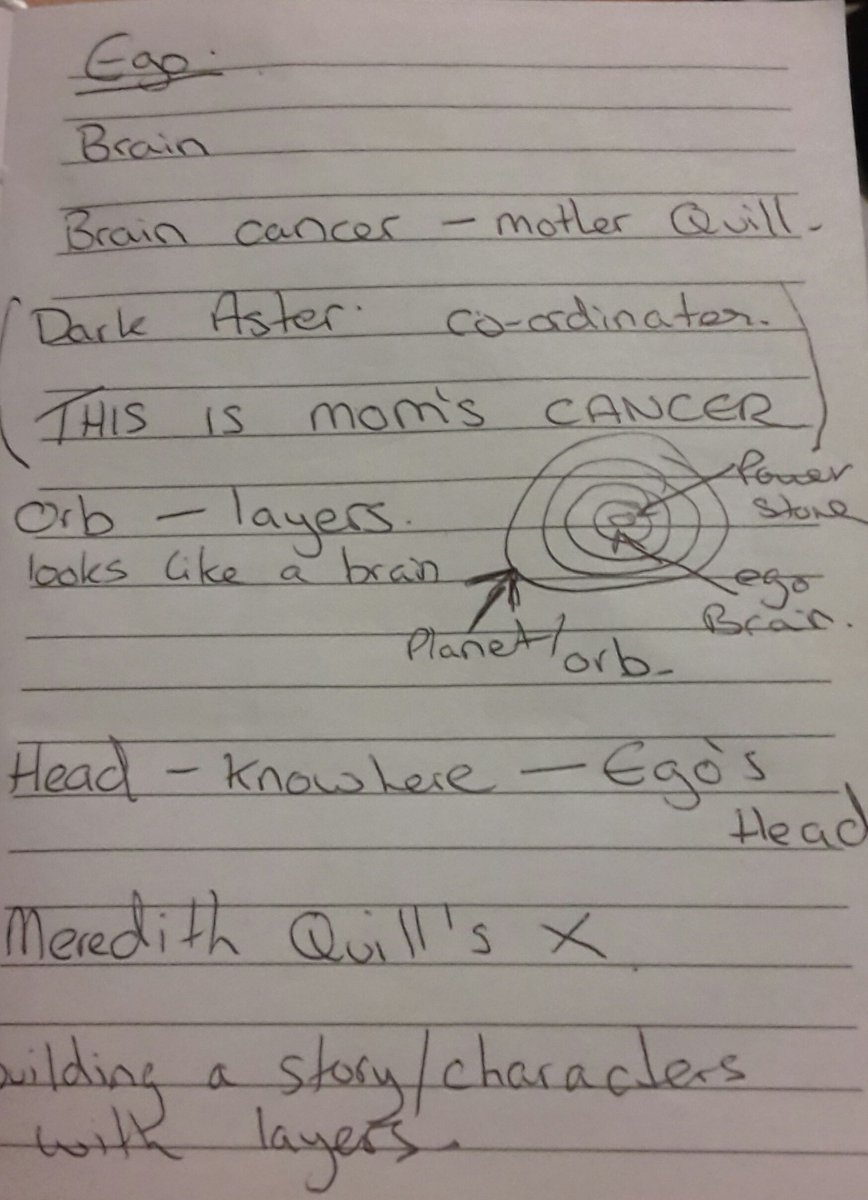 Ego.
Brain
Brain cancer - mother Quill.
(Dark Aster. co-ordinator.
THIS IS mom's CANCER)
Orb - layers.
looks like a brain
Power
Stone
ego
Brain.
Planet/
orb.
Head - Knowhere - Ego's
Head
Meredith Quill's X
uilding a story/characters
with layers.